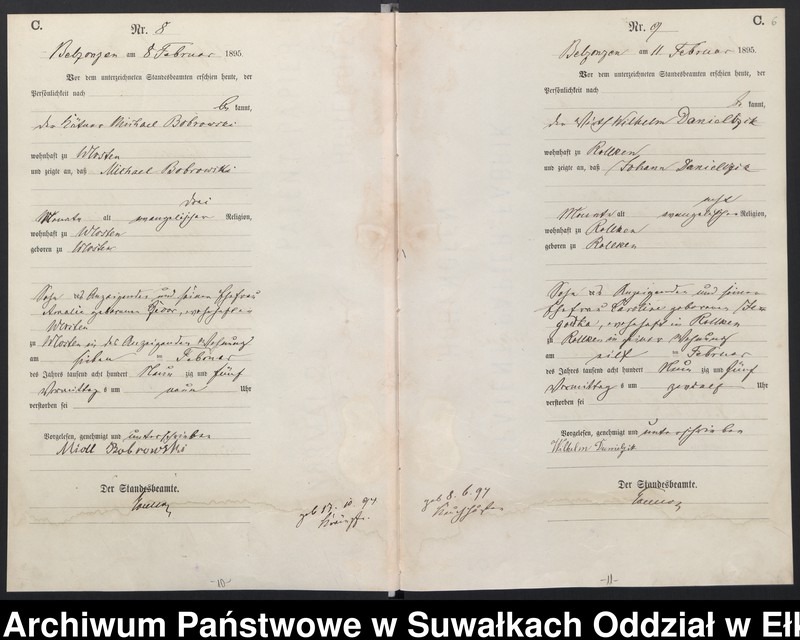 C.
Nr. 8
Belzonzen am 8 Februar 1895.
Vor dem unterzeichneten Standesbeamten erschien heute, der
Persönlichkeit nach
be kannt,
der Michael Bobrowski
wohnhaft zu Mosten
und zeigte an, daß Michael Bobrowski
drei
Monate alt evangelischer Religion,
wohnhaft zu Mosten
geboren zu Mosten
Sohn des Anzeigenden und seiner Ehefrau
Amalie geborenen wohnhaft in
Mosten
zu Mosten in des Anzeigenden Wohnung
am sieben ten Februar
des Jahres tausend acht hundert Neun zig und fünf
Vormittag s um neun Uhr
verstorben sei
Vorgelesen, genehmigt und unterschrieben
Bobrowski
Der Standesbeamte.
geb 17. 10. 94
-10-
C. 6
Nr. 9
Belzonzen am 11 Februar 1895.
Vor dem unterzeichneten Standesbeamten erschien heute, der
Persönlichkeit nach
be kannt,
der Wirth Wilhelm Danieltzik
wohnhaft zu Rollken
und zeigte an, daß Johann Danieltzik
acht
Monate alt evangelischer Religion,
wohnhaft zu Rollken
geboren zu Rollken
Sohn des Anzeigenden und seiner
Ehefrau Caroline geborenen
wohnhaft in Rollken
zu Rollken in seiner Wohnung
am elf ten Februar
des Jahres tausend acht hundert Neun zig und fünf
Vormittag s um Uhr
verstorben sei
Vorgelesen, genehmigt und unterschrieben
Wilhelm Danieltzik
Der Standesbeamte.
geb 8. 6. 94
-11-
Archiwum Państwowe w Suwałkach Oddział w Eł